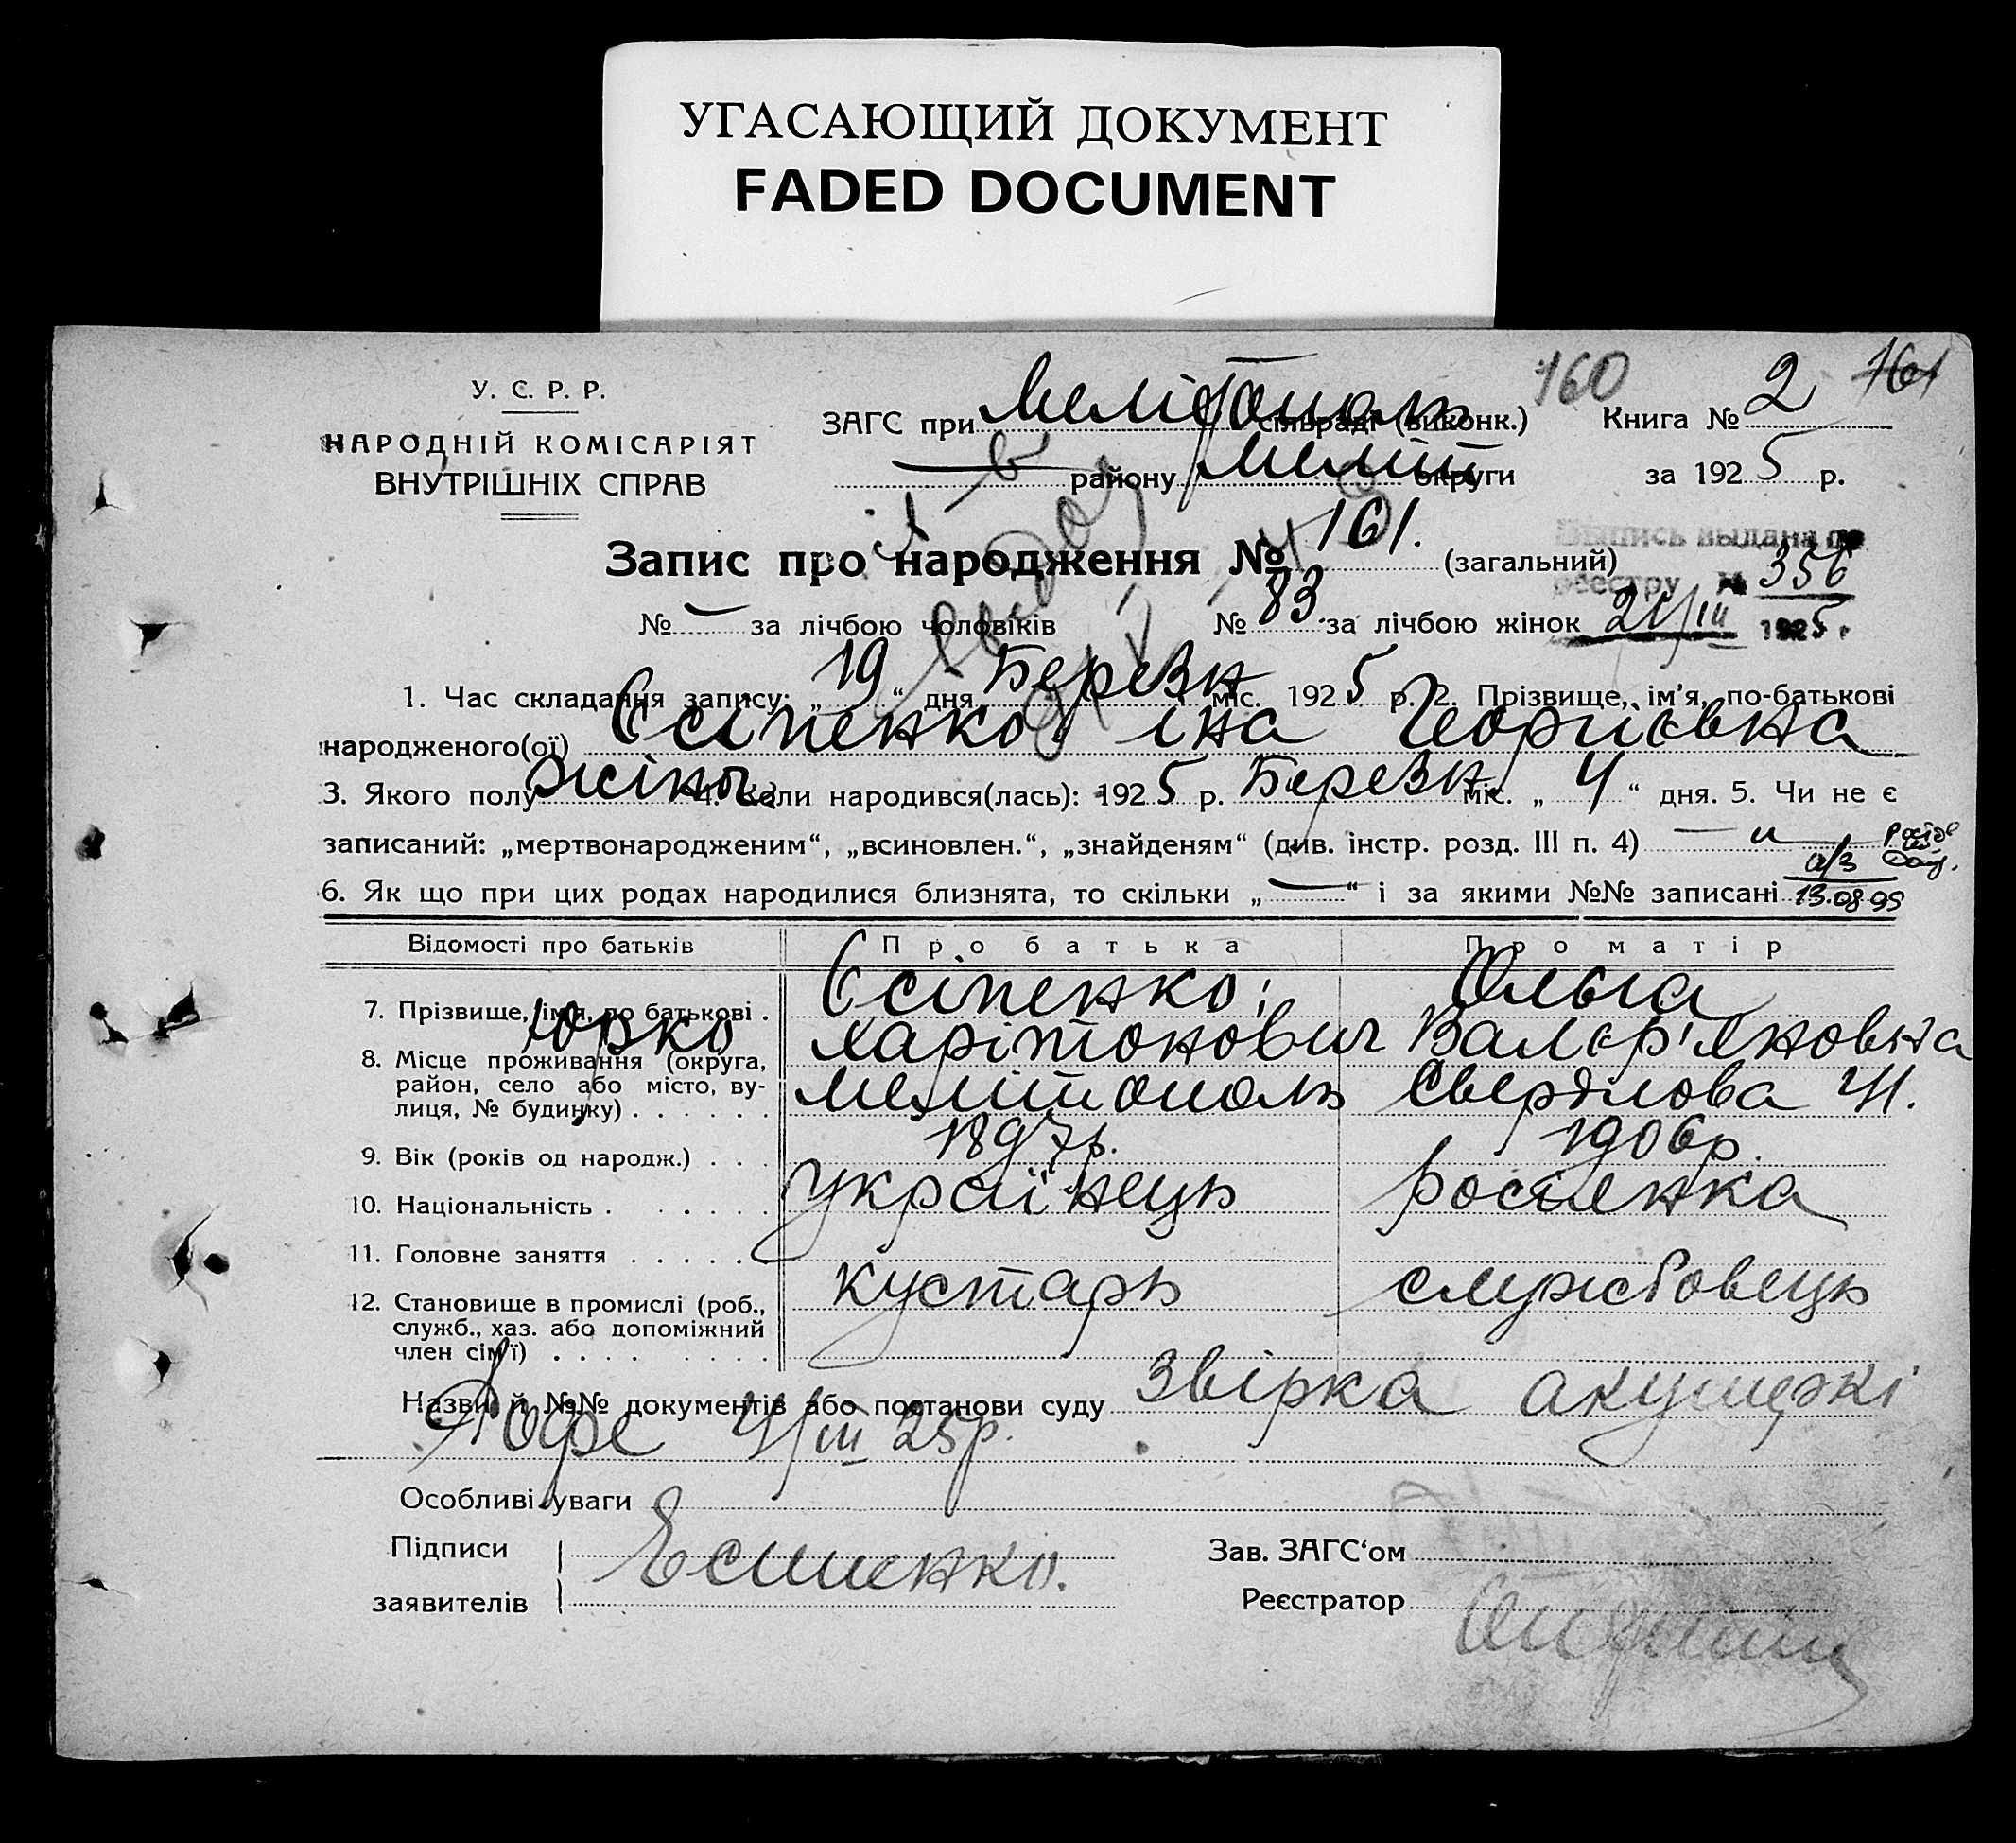 УГАСАЮЩИЙ ДОКУМЕНТ
FADED DOCUMENT
У. С. Р. Р.
НАРОДНІЙ КОМІСАРІЯТ
ВНУТРІШНІХ СПРАВ
160
161
ЗАГС при Мелітополь сільраді (виконк.) Книга № 2
району Меліт округи за 1925 р.
Запис про народження № 161. (загальний)
выдана по
реестру № 356
№ — за лічбою чоловіків № 83. за лічбою жінок
21/III 1925 г
1. Час складання запису: „19“ дня Березн міс. 1925 р. 2. Прізвище, ім'я, по-батькові
народженого(ої) Єсіпенко Іна Георгієвна
3. Якого полу жіноч. 4. Коли народився(лась): 1925 р. Березн. міс. „4“ дня. 5. Чи не є
записаний: „мертвонародженим“, „всиновлен.“, „знайденям“ (див. інстр. розд. III п. 4) —
а/з
6. Як що при цих родах народилися близнята, то скільки „—“ і за якими №№ записані 13.08.95
Відомості про батьків Про батька Про матір
7. Прізвище, ім'я, по батькові . Єсіпенко; Ольга
Юрко Харітонович Валєр'яновна
8. Місце проживання (округа, район, село або місто, вулиця, № будинку) . . . . . . Мелітополь Свердлова 41.
9. Вік (років од народж.) . . . 1897р. 1906р.
10. Національність . . . . . . українець росіянка
11. Головне заняття . . . . . .
12. Становище в промислі (роб., служб., хаз. або допоміжний член сім'ї) . . . . . . . . кустарь службовець
Назви й №№ документів або постанови суду Звірка акушеркі
4/III 25р.
Особливі уваги
Підписи Есипенко. Зав. ЗАГС‘ом
заявителів Реєстратор